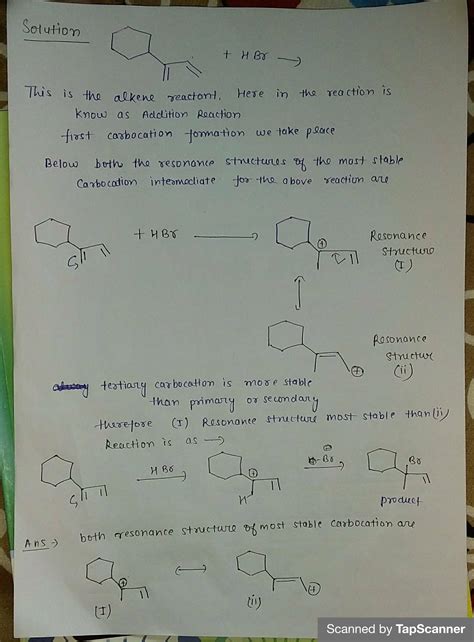 Solution
+ HBr →
This is the alkene reactant. Here in the reaction is
know as Addition Reaction
first carbocation formation we take peace
Below both the resonance structures of the most stable
Carbocation intermediate for the above reaction are
+ HBr
⊕
Resonance
Structure
(I)
⊕
Resonance
Structur
(ii)
tertiary carbocation is more stable
than primary or secondary
therefore (I) Resonance structure most stable than (ii)
Reaction is as →
HBr
⊕
H
Br
Br
product
Ans → both resonance structure of most stable carbocation are
⊕
(I)
⊕
(ii)
Scanned by TapScanner